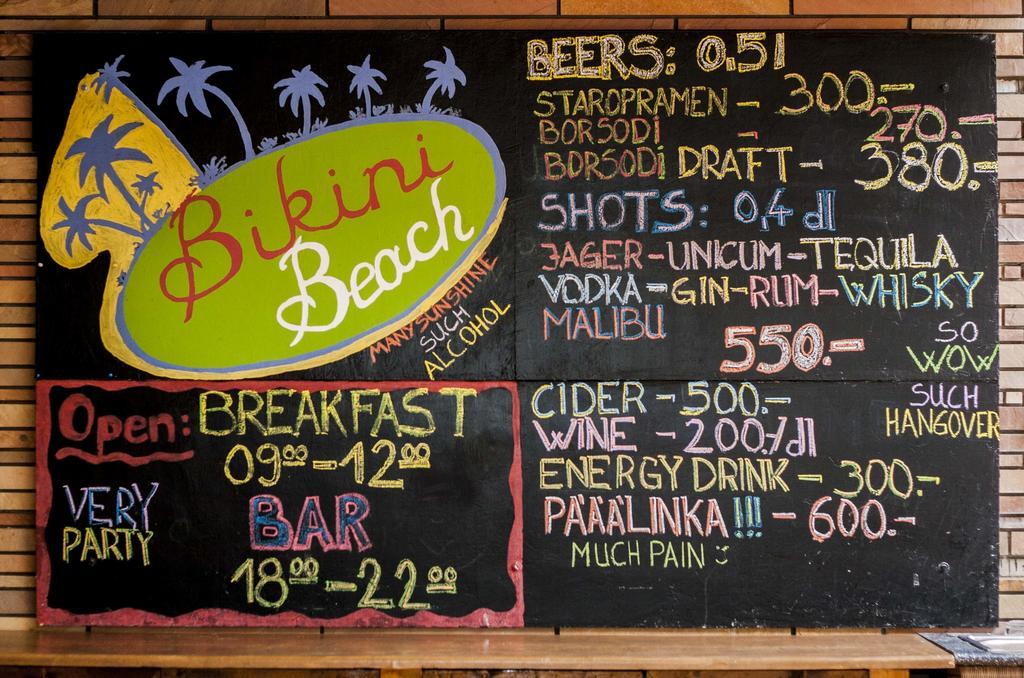 Bikini
Beach
MANY SUNSHINE
SUCH
ALCOHOL
Open: BREAKFAST
09⁰⁰-12⁰⁰
VERY
PARTY
BAR
18⁰⁰-22⁰⁰
BEERS: 0.5l
STAROPRAMEN - 300.-
BORSODI - 270.-
BORSODI DRAFT - 380.-
SHOTS: 0,4 dl
JAGER-UNICUM-TEQUILA
VODKA-GIN-RUM-WHISKY
MALIBU
550.-
SO
WOW
SUCH
HANGOVER
CIDER -500.-
WINE -200./dl
ENERGY DRINK - 300.-
PÄÄÄLINKA !!! - 600.-
MUCH PAIN :)